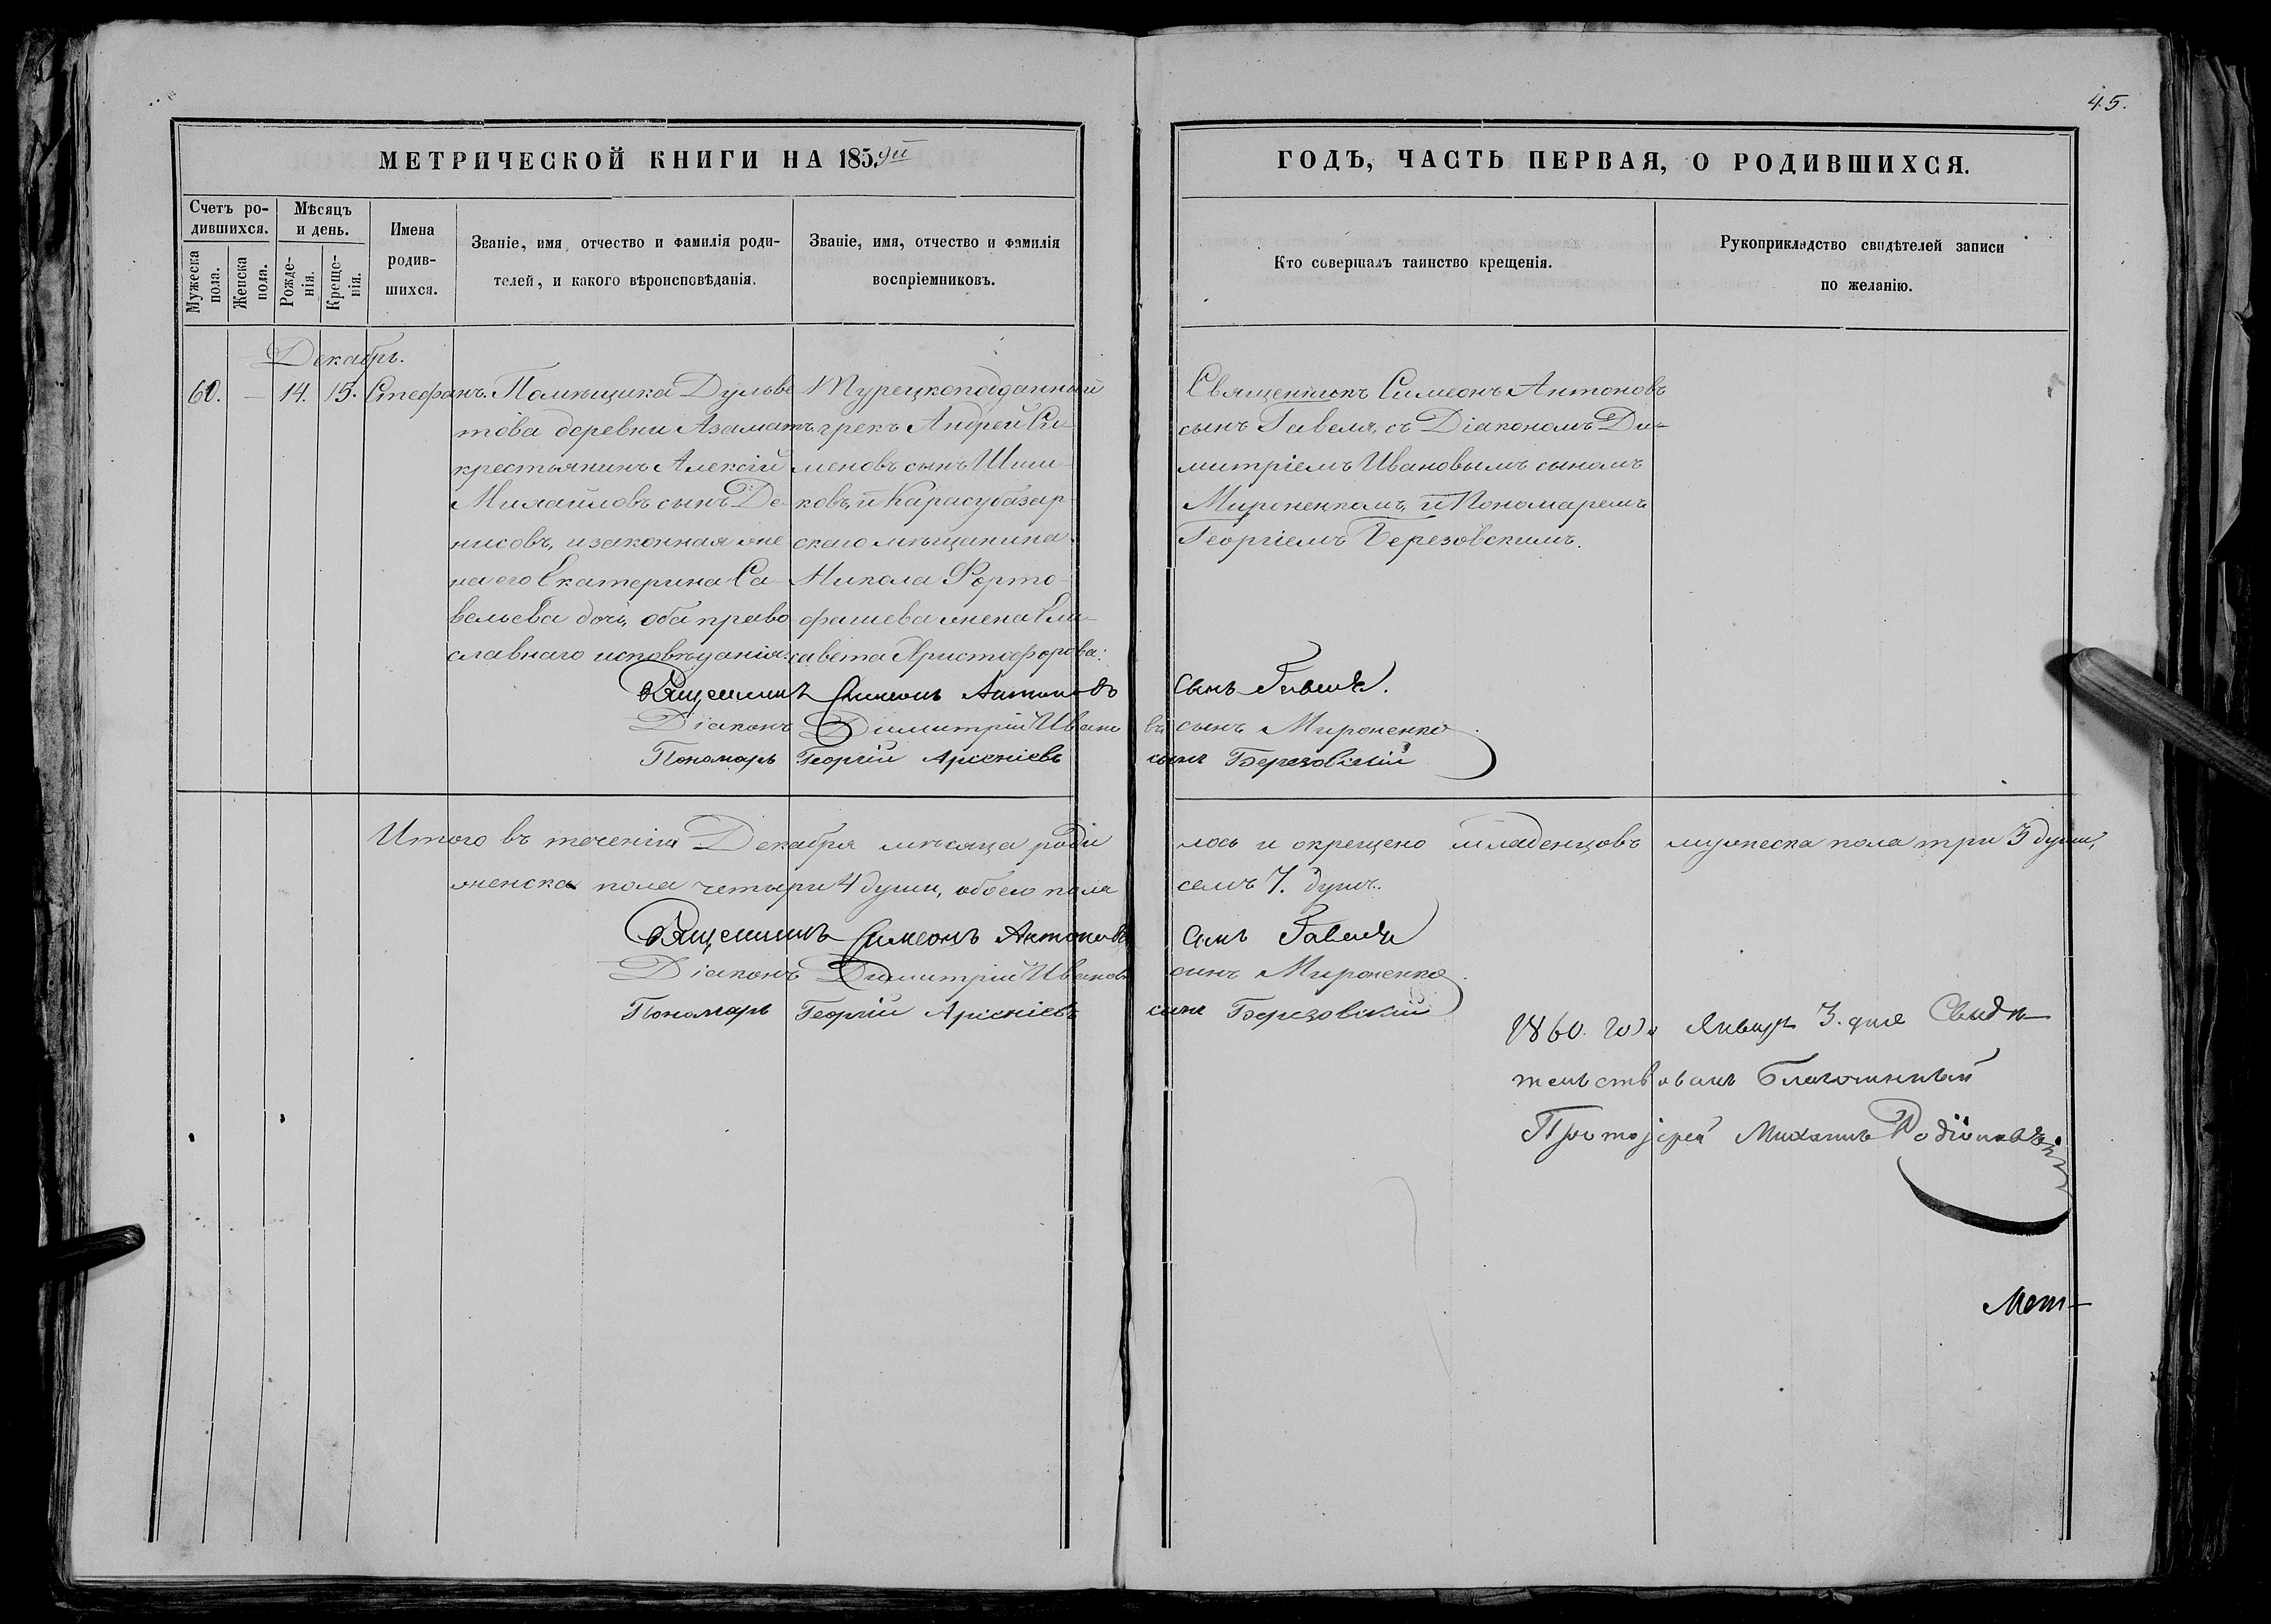 45.
МЕТРИЧЕСКОЙ КНИГИ НА 1859й
ГОДЪ, ЧАСТЬ ПЕРВАЯ, О РОДИВШИХСЯ.
Счетъ ро-
дившихся.
Мужеска пола.
Женска пола.
Мѣсяцъ
и день.
Рожде-
нія.
Креще-
нія.
Имена
родив-
шихся.
Званіе, имя, отчество и фамилія роди-
телей, и какого вѣроисповѣданія.
Званіе, имя, отчество и фамилія
воспріемниковъ.
Кто совершалъ таинство крещенія.
Рукоприкладство свидѣтелей записи
по желанію.
Декабрь.
60. — 14. 15. Стефанъ.
Помѣщика Дульве
това деревни Азаматъ
крестьянинъ Алексій
Михаиловъ сынъ Де-
нисовъ, и законная же
на его Екатерина Са-
вельева дочь, оба право
славнаго исповѣданія.
Турецкоподданный
грекъ Андрей Си-
меновъ сынъ Шиш-
ковъ, и Карасубазар-
скаго мѣщанина
Никола Форто-
фашева жена Ели-
савета Христофорова:
Священникъ Симеонъ Антоновъ
сынъ Гавеля, съ Діакономъ Ди-
митріемъ Ивановымъ сыномъ
Мироненкомъ, и Пономаремъ
Георгіемъ Березовскимъ.
Священникъ Симеонъ Антоновъ сынъ Гавеля.
Діаконъ Димитрій Ивановъ сынъ Мироненко
Пономарь Георгій Арсеніевъ сынъ Березовскій
Итого въ теченіи Декабря мѣсяца роди лось и окрещено младенцовъ мужеска пола три 3 души,
женска пола четыри 4 души, обоего пола семъ 7. душъ.
Священникъ Симеонъ Антоновъ сынъ Гавеля
Діаконъ Димитрій Ивановъ сынъ Мироненко
Пономарь Георгій Арсеніевъ сынъ Березовскій
1860. года Января 3. дня Свидѣ-
тельствовалъ Благочинный
Протоіерей Михаилъ Родіоновъ
Мет-